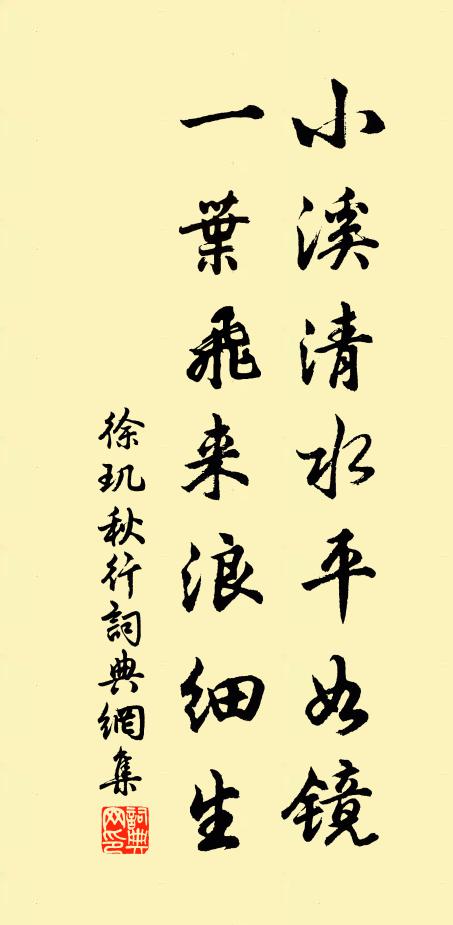 小溪清水平如镜
一葉飛来浪细生
徐玑秋行詞典網集
詞典网印